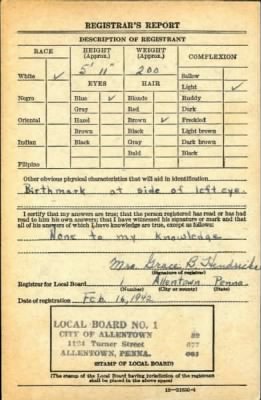 REGISTRAR'S REPORT
DESCRIPTION OF REGISTRANT
RACE HEIGHT (Approx.) WEIGHT (Approx.) COMPLEXION
5' 11" 200
White ✓ EYES HAIR Sallow
Light ✓
Negro Blue ✓ Blonde Ruddy
Gray Red Dark
Oriental Hazel Brown ✓ Freckled
Brown Black Light brown
Indian Black Gray Dark brown
Bald Black
Filipino
Other obvious physical characteristics that will aid in identification
Birthmark at side of left eye.
I certify that my answers are true; that the person registered has read or has had
read to him his own answers; that I have witnessed his signature or mark and that
all of his answers of which I have knowledge are true, except as follows:
None to my knowledge
Mrs. Grace B. Hendricks
(Signature of registrar)
Registrar for Local Board Allentown Penna.
(Number) (City or county) (State)
Date of registration Feb. 16, 1942
LOCAL BOARD NO. 1
CITY OF ALLENTOWN 89
1124 Turner Street 077
ALLENTOWN, PENNA. 001
(STAMP OF LOCAL BOARD)
(The stamp of the Local Board having jurisdiction of the registrant
shall be placed in the above space)